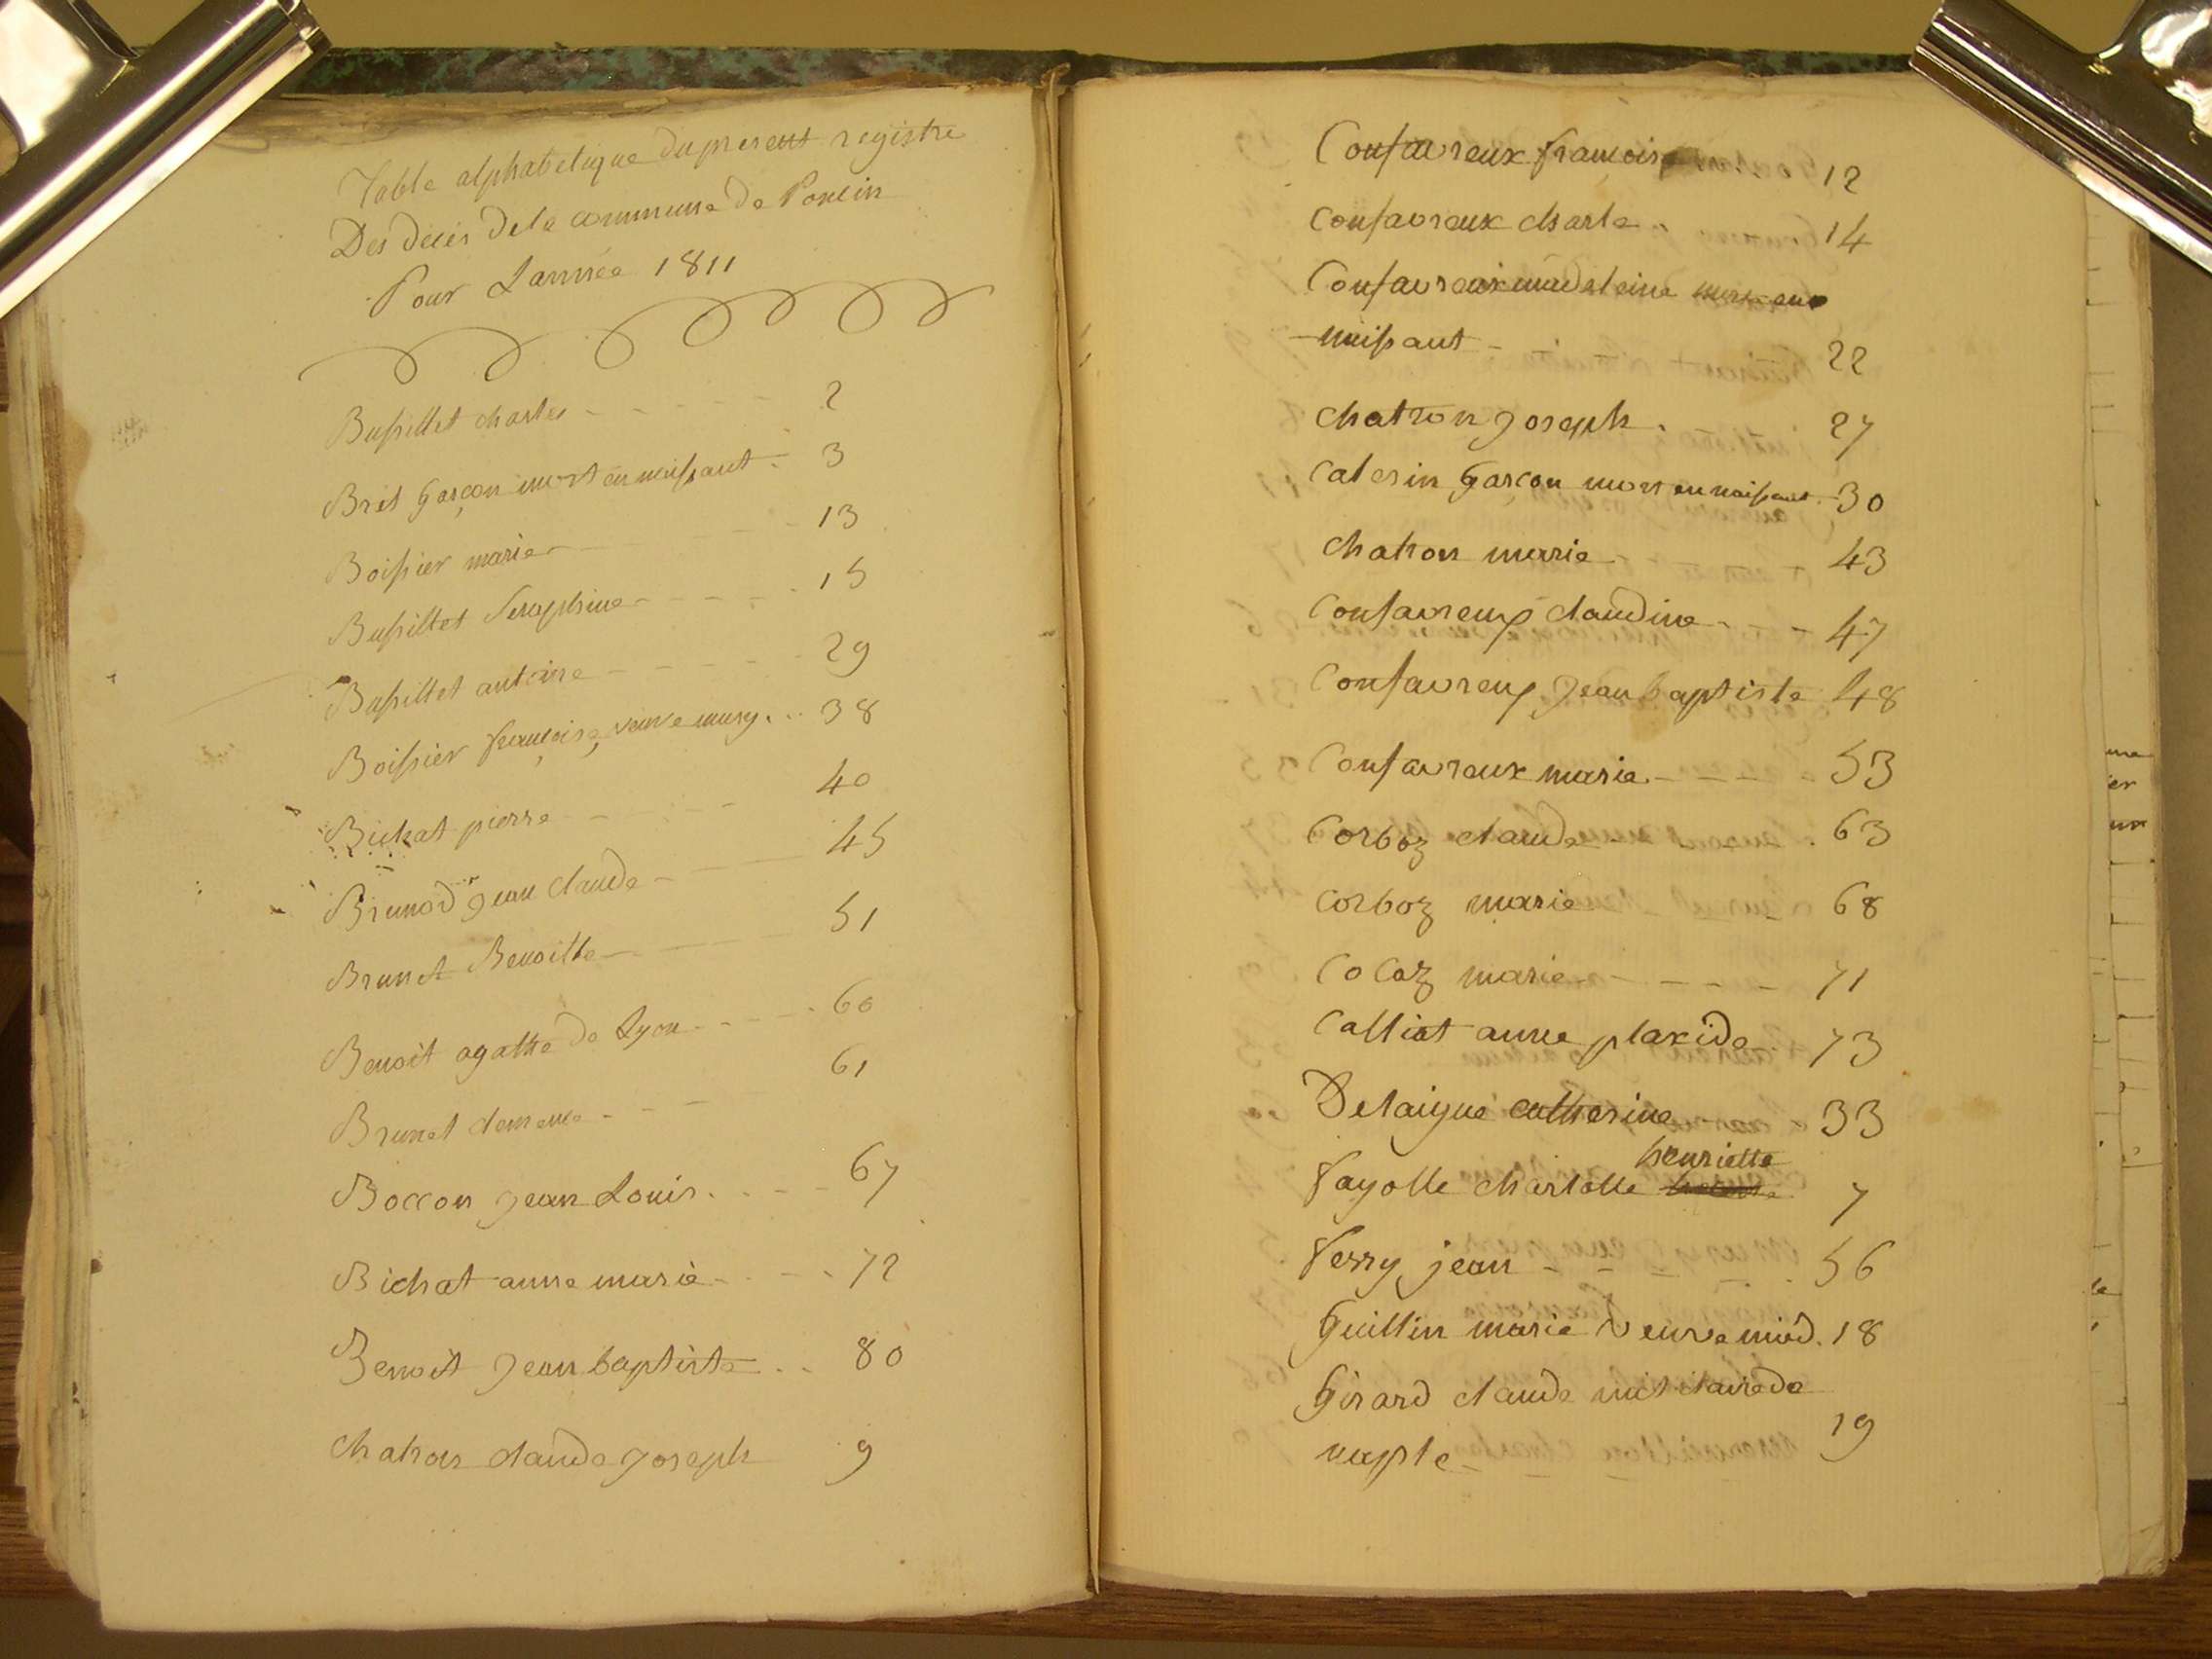 Table alphabetique du present registre
Des deces de la commune de Poncin
Pour L'année 1811
Bussillet charles 2
Bret garçon mort en naissant 3
Boissier marie 13
Bussillet Seraphine 15
Bussillet antoine 29
Boissier francoise, veuve mury 38
Bichat pierre 40
Brunod Jean Claude 45
Brunet Benoitte 51
Benoit agathe de Lyon 60
Brunet clemence 61
Boccon Jean Louis 67
Bichat anne marie 72
Benoit Jean baptiste 80
Chatron claude Joseph 9
Confavreux francoise 12
Confavreux charle 14
Confavreux madeleine morte en
naissant 22
Chatron Joseph 27
Caterin garçon mort en naissant 30
Chatron marie 43
Confavreux claudine 47
Confavreux Jean baptiste 48
Confavreux marie 53
Corboz claude 63
Corboz marie 68
Cocoz marie 71
Calliat anne placide 73
Delaigue catherine 33
henriette
Fayolle charlotte 7
Ferry jean 56
Guillin marie veuve miod. 18
Girard claude militaire de
naple 19